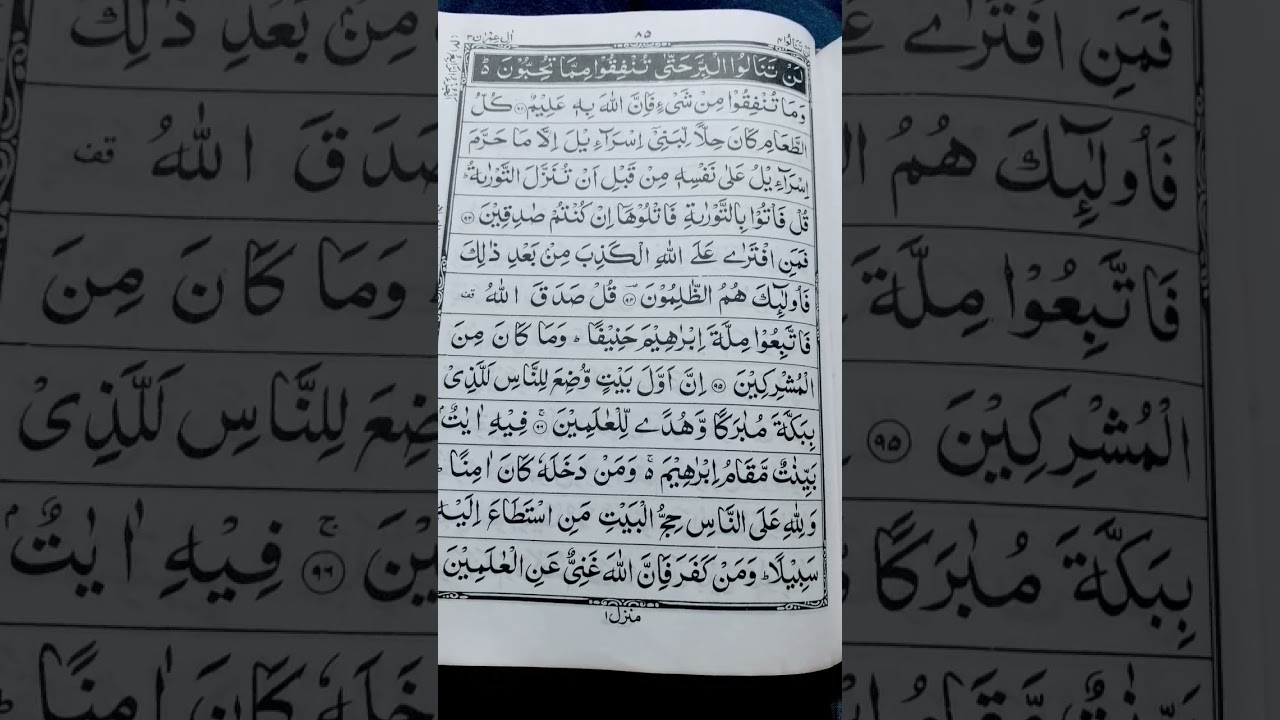 اٰل عمرٰن ٣
٨٥
لن تنالوا ٤
لَنْ تَنَالُوا الْبِرَّ حَتّٰى تُنْفِقُوْا مِمَّا تُحِبُّوْنَ ؕ
وَمَا تُنْفِقُوْا مِنْ شَیْءٍ فَاِنَّ اللّٰهَ بِهٖ عَلِيْمٌ ﴿٩٢﴾ كُلُّ
الطَّعَامِ كَانَ حِلًّا لِّبَنِیْۤ اِسْرَآءِيْلَ اِلَّا مَا حَرَّمَ
اِسْرَآءِيْلُ عَلٰى نَفْسِهٖ مِنْ قَبْلِ اَنْ تُنَزَّلَ التَّوْرٰىةُ ؕ
قُلْ فَاْتُوْا بِالتَّوْرٰىةِ فَاتْلُوْهَاۤ اِنْ كُنْتُمْ صٰدِقِيْنَ ﴿٩٣﴾
فَمَنِ افْتَرٰى عَلَى اللّٰهِ الْكَذِبَ مِنْ بَعْدِ ذٰلِكَ
فَاُولٰٓئِكَ هُمُ الظّٰلِمُوْنَ ﴿٩٤﴾ قُلْ صَدَقَ اللّٰهُ قف
فَاتَّبِعُوْا مِلَّةَ اِبْرٰهِيْمَ حَنِيْفًا ؕ وَمَا كَانَ مِنَ
الْمُشْرِكِيْنَ ﴿٩٥﴾ اِنَّ اَوَّلَ بَيْتٍ وُّضِعَ لِلنَّاسِ لَلَّذِیْ
بِبَكَّةَ مُبٰرَكًا وَّهُدًى لِّلْعٰلَمِيْنَ ﴿٩٦﴾ۚ فِيْهِ اٰيٰتٌۢ
بَيِّنٰتٌ مَّقَامُ اِبْرٰهِيْمَ ۚ۬ وَمَنْ دَخَلَهٗ كَانَ اٰمِنًا ؕ
وَلِلّٰهِ عَلَى النَّاسِ حِجُّ الْبَيْتِ مَنِ اسْتَطَاعَ اِلَيْهِ
سَبِيْلًا ؕ وَمَنْ كَفَرَ فَاِنَّ اللّٰهَ غَنِیٌّ عَنِ الْعٰلَمِيْنَ
منزل ١